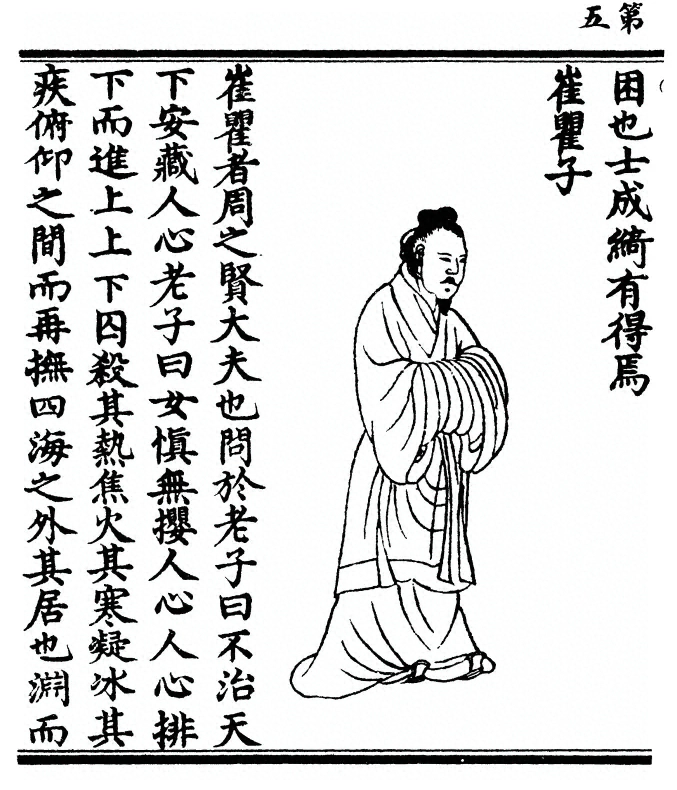 第五
困也士成綺有得焉
崔瞿子
崔瞿者周之賢大夫也問於老子曰不治天
下安藏人心老子曰女慎無攖人心人心排
下而進上上下囚殺其熱焦火其寒凝冰其
疾俯仰之間而再撫四海之外其居也淵而